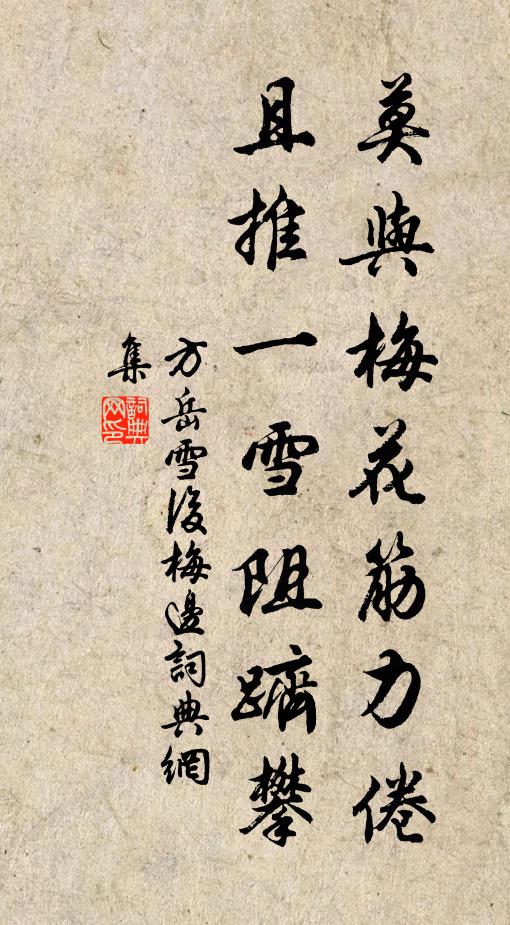 莫與梅花筋力倦
且推一雪阻躋攀
方岳雪後梅邊詞典網
集
詞典網印